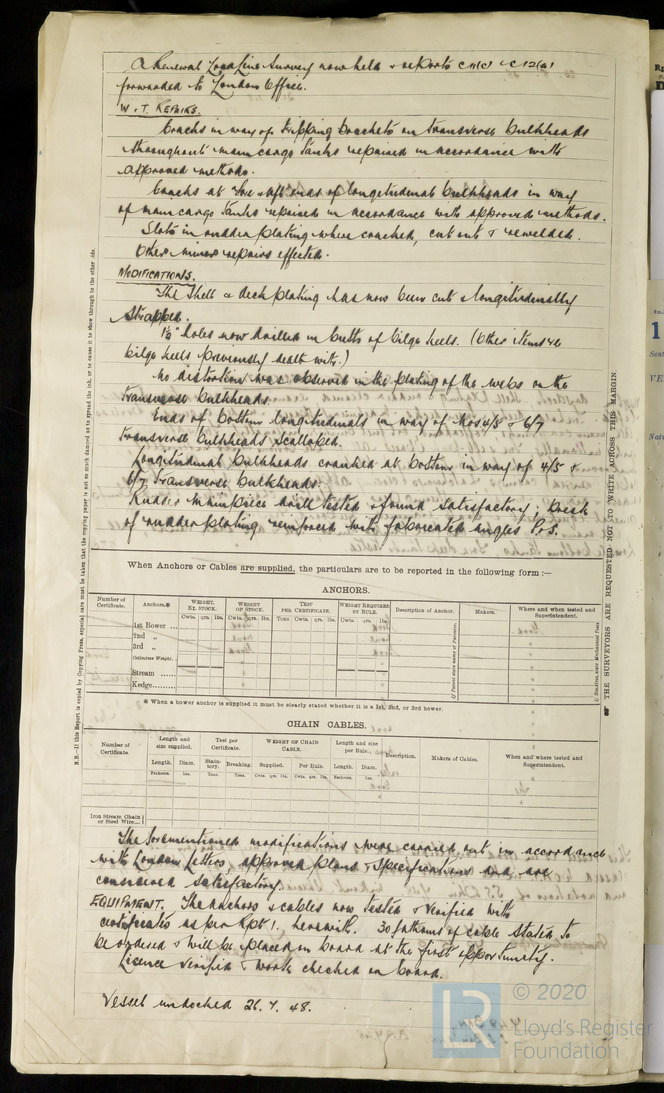 A Renewal Load Line Survey now held & reports C11(c) & C12(a)
forwarded to London Office.
W.T. REPAIRS.
Cracks in way of tripping brackets on transverse bulkheads
throughout main cargo tanks repaired in accordance with
approved methods.
Cracks at fore & aft ends of longitudinal bulkheads in way
of main cargo tanks repaired in accordance with approved methods.
Slots in rudder plating where cracked, cut out & rewelded.
Other minor repairs effected.
MODIFICATIONS.
The Shell & deck plating has now been cut & longitudinally
strapped.
1½" holes now drilled in butts of bilge keels. (Other items re
bilge keels previously dealt with.)
No distortion was observed in the plating of the webs on the
transverse bulkheads.
Ends of bottom longitudinals in way of Nos 4/5 & 6/7
transverse bulkheads scalloped.
Longitudinal bulkheads crowned at bottom in way of 4/5 &
6/7 transverse bulkheads.
Rudder mainpiece drill tested & found satisfactory;
of rudder plating reinforced with fabricated angles P.&S.
When Anchors or Cables are supplied, the particulars are to be reported in the following form :—
ANCHORS.
Number of Certificate. Anchors.* WEIGHT. EX. STOCK. WEIGHT OF STOCK. TEST PER CERTIFICATE. WEIGHT REQUIRED BY RULE. Description of Anchor. Makers. Where and when tested and Superintendent.
Cwts. qrs. lbs. Cwts. qrs. lbs. Tons Cwt. qrs. lbs. Cwts. qrs. lbs.
1st Bower
2nd „
3rd „
Collective Weight.
Stream
Kedge
* When a bower anchor is supplied it must be clearly stated whether it is a 1st, 2nd, or 3rd bower.
CHAIN CABLES.
Number of Certificate. Length and size supplied. Test per Certificate. WEIGHT OF CHAIN CABLE. Length and size per Rule. Description. Makers of Cables. When and where tested and Superintendent.
Length. Diam. Statutory. Breaking. Supplied. Per Rule. Length. Diam.
Fathoms. Ins. Tons. Tons. Cwts. qrs. lbs. Cwt. qrs. lbs. Fathoms. Ins.
Iron Stream Chain or Steel Wire
The forementioned modifications were carried out in accordance
with London Letters, approved plans & Specifications and are
considered satisfactory.
EQUIPMENT. The anchors & cables now tested & verified with
certificates as per Rpt 1. herewith. 30 fathoms of cable stated to
be ordered & will be placed on board at the first opportunity.
Licence verified & work checked on board.
Vessel undocked 26.7.48.
N.B.—If this Report is copied by Copying Press, especial care must be taken that the copying paper is not so much damped as to spread the ink, or to cause it to show through to the other side.
THE SURVEYORS ARE REQUESTED NOT TO WRITE ACROSS THIS MARGIN.
© 2020
Lloyd's Register
Foundation
LR